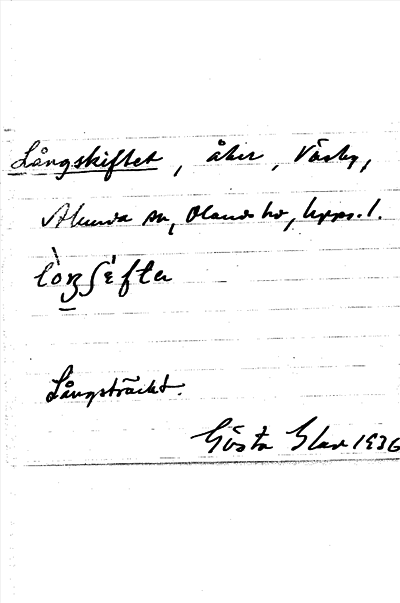 Långskiftet, åker, Väsby,
Alunda sn, Olands hd, Upps. l.
Långsträckt.
Gösta Elar 1936